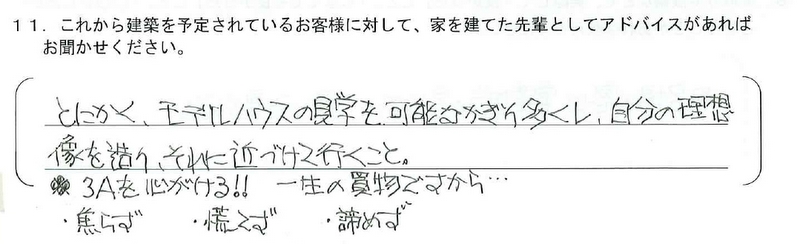 11．これから建築を予定されているお客様に対して、家を建てた先輩としてアドバイスがあれば
お聞かせください。
とにかく、モデルハウスの見学を可能なかぎり多くし、自分の理想
像を造り、それに近づけて行くこと。
3Aを心がける!! 一生の買物ですから…
・焦らず ・慌てず ・諦めず